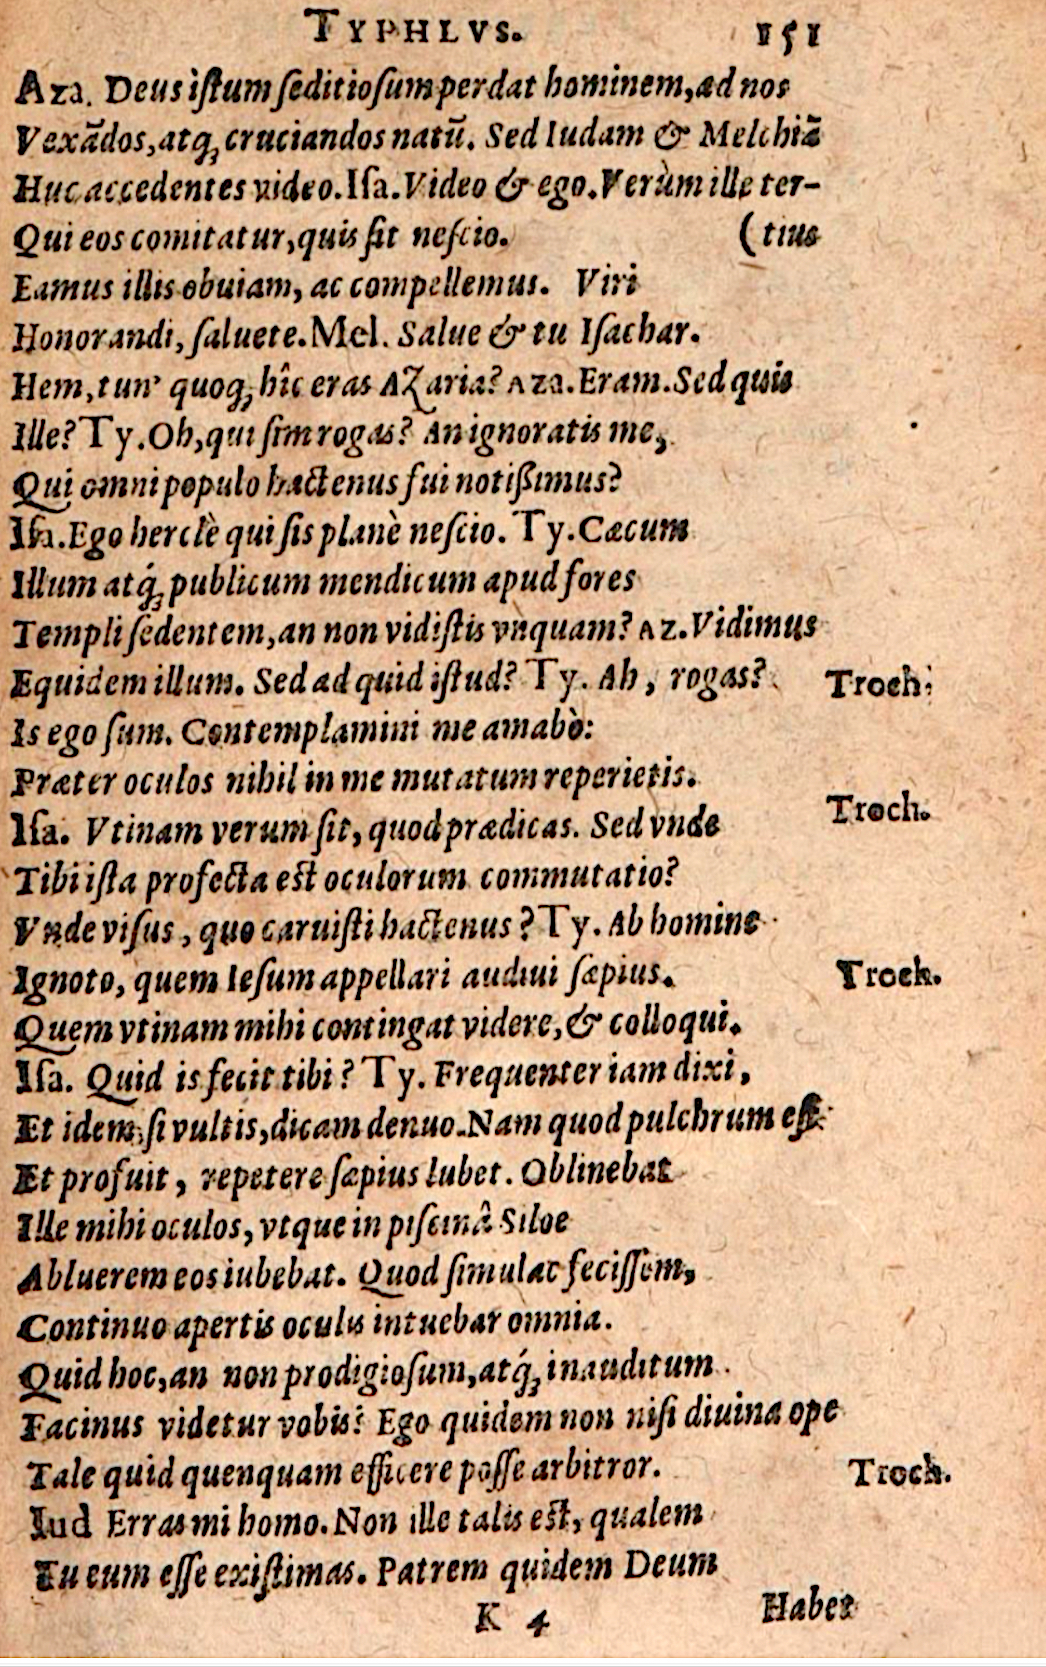 TYPHLVS. 151
Aza. Deus istum seditiosum perdat hominem, ad nos
Vexãdos, atq; cruciandos natũ. Sed Iudam & Melchiã
Huc accedentes video. Isa. Video & ego. Verùm ille ter-
Qui eos comitatur, quis sit nescio. (tius
Eamus illis obuiam, ac compellemus. Viri
Honorandi, saluete. Mel. Salue & tu Isachar.
Hem, tun' quoq; hîc eras Azaria? Aza. Eram. Sed quis
Ille? Ty. Oh, qui sim rogas? An ignoratis me,
Qui omni populo hactenus fui notißimus?
Isa. Ego herclè qui sis planè nescio. Ty. Cæcum
Illum atq́; publicum mendicum apud fores
Templi sedentem, an non vidistis vnquam? Az. Vidimus
Equidem illum. Sed ad quid istud? Ty. Ah, rogas? Troch:
Is ego sum. Contemplamini me amabò:
Præter oculos nihil in me mutatum reperietis.
Isa. Vtinam verum sit, quod prædicas. Sed vnde Troch.
Tibi ista profecta est oculorum commutatio?
Vnde visus, quo caruisti hactenus? Ty. Ab homine
Ignoto, quem Iesum appellari audiui sæpius. Troch.
Quem vtinam mihi contingat videre, & colloqui.
Isa. Quid is fecit tibi? Ty. Frequenter iam dixi,
Et idem, si vultis, dicam denuo. Nam quod pulchrum est
Et profuit, repetere sæpius lubet. Oblinebat
Ille mihi oculos, vtque in piscinâ Siloe
Abluerem eos iubebat. Quod simulac fecissem,
Continuo apertis oculis intuebar omnia.
Quid hoc, an non prodigiosum, atq́; inauditum
Facinus videtur vobis? Ego quidem non nisi diuina ope
Tale quid quenquam efficere posse arbitror. Troch.
Iud Erras mi homo. Non ille talis est, qualem
Tu eum esse existimas. Patrem quidem Deum
K 4 Habet